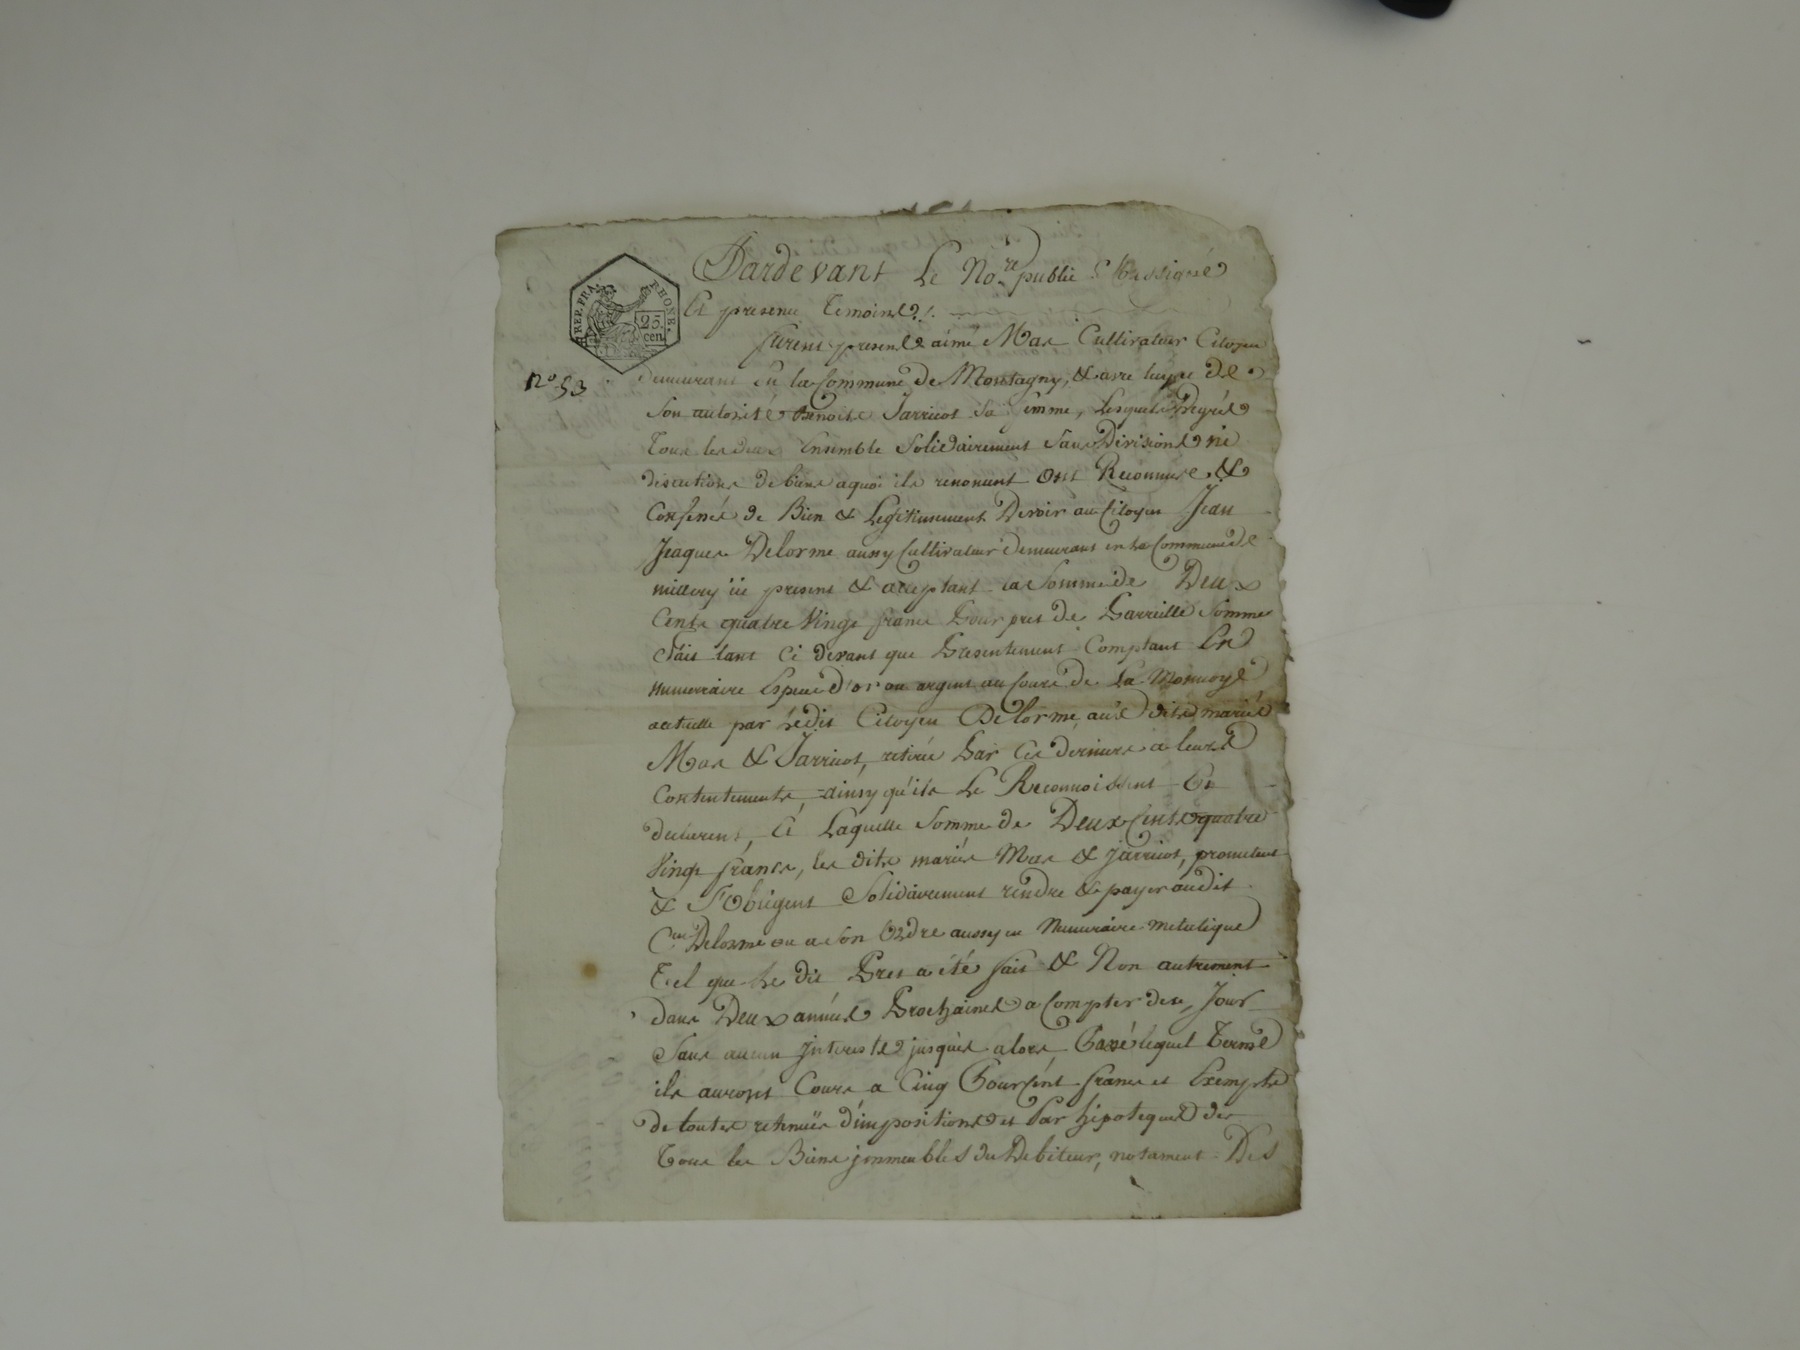 Pardevant Le No.re public Sousigné
Et presence Temoins ./.
REP. FRA. RHONE. 25. cen.
furent present aimé Mas Cultivateur Citoyen
N° 53
demeurant en la Commune de Montagny, & avec luy de
Son autorité Benoite Jarricot Sa femme, Lesquels degrés
Tous les deux Ensemble Solidairement Sans Divisions ni
discutions de biens a quoi ils renoncent Ont Reconnus &
Confessés de Bien & Legitimement Devoir au Citoyen Jean
Jeaques Delorme aussy Cultivateur demeurant en la Commune de
millery ici present & acceptant la Somme de Deux
Cents quatre Vingt francs Pour pret de Parreille Somme
fait tant Ci devant que Presentement Comptant En
numeraire Espece d'or ou argent au Cours de La Monnoye
actuelle par Ledit Citoyen Delorme, aux dits mariés
Mas & Jarricot, retirée Par Ces derniers a leurs
Contentements, ainsy qu'ils Le Reconnoissent Et
declarent, Et Laquelle Somme de Deux Cents quatre
Vingt francs, les dits mariés Mas & Jarricot, promettent
& S'Obligent Solidairement rendre & payer audit
C.en Delorme ou a Son Ordre aussy en Numeraire metalique
Tel que Le dit Pret a été fait & Non autrement
dans Deux années Prochaines a Compter de ce Jour
Sans aucun Interests jusques alors Passé lequel Terme
ils auront Cours a Cinq Pour Cent francs et Exempts
de toutes retenües d'impositions et Par hipoteques de
Tous les Biens jmmeubles du Debiteur, notament Des